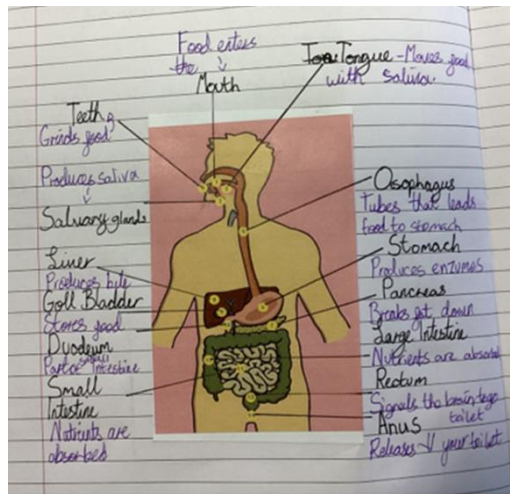 Food enters
the ↓
Mouth
Tongue - Moves food
with saliva.
Teeth
Grinds food
Produces saliva
↓
Salivary glands
Liver
Produces bile
Gall Bladder
Stores food
Duodeum
Part of small intestine
Small
Intestine
Nutrients are
absorbed
Oesophagus
Tubes that leads
food to stomach
Stomach
Produces enzymes
Pancreas
Breaks fat down
Large Intestine
Nutrients are absorbed
Rectum
Signals the brain to go
toilet
Anus
Releases your toilet